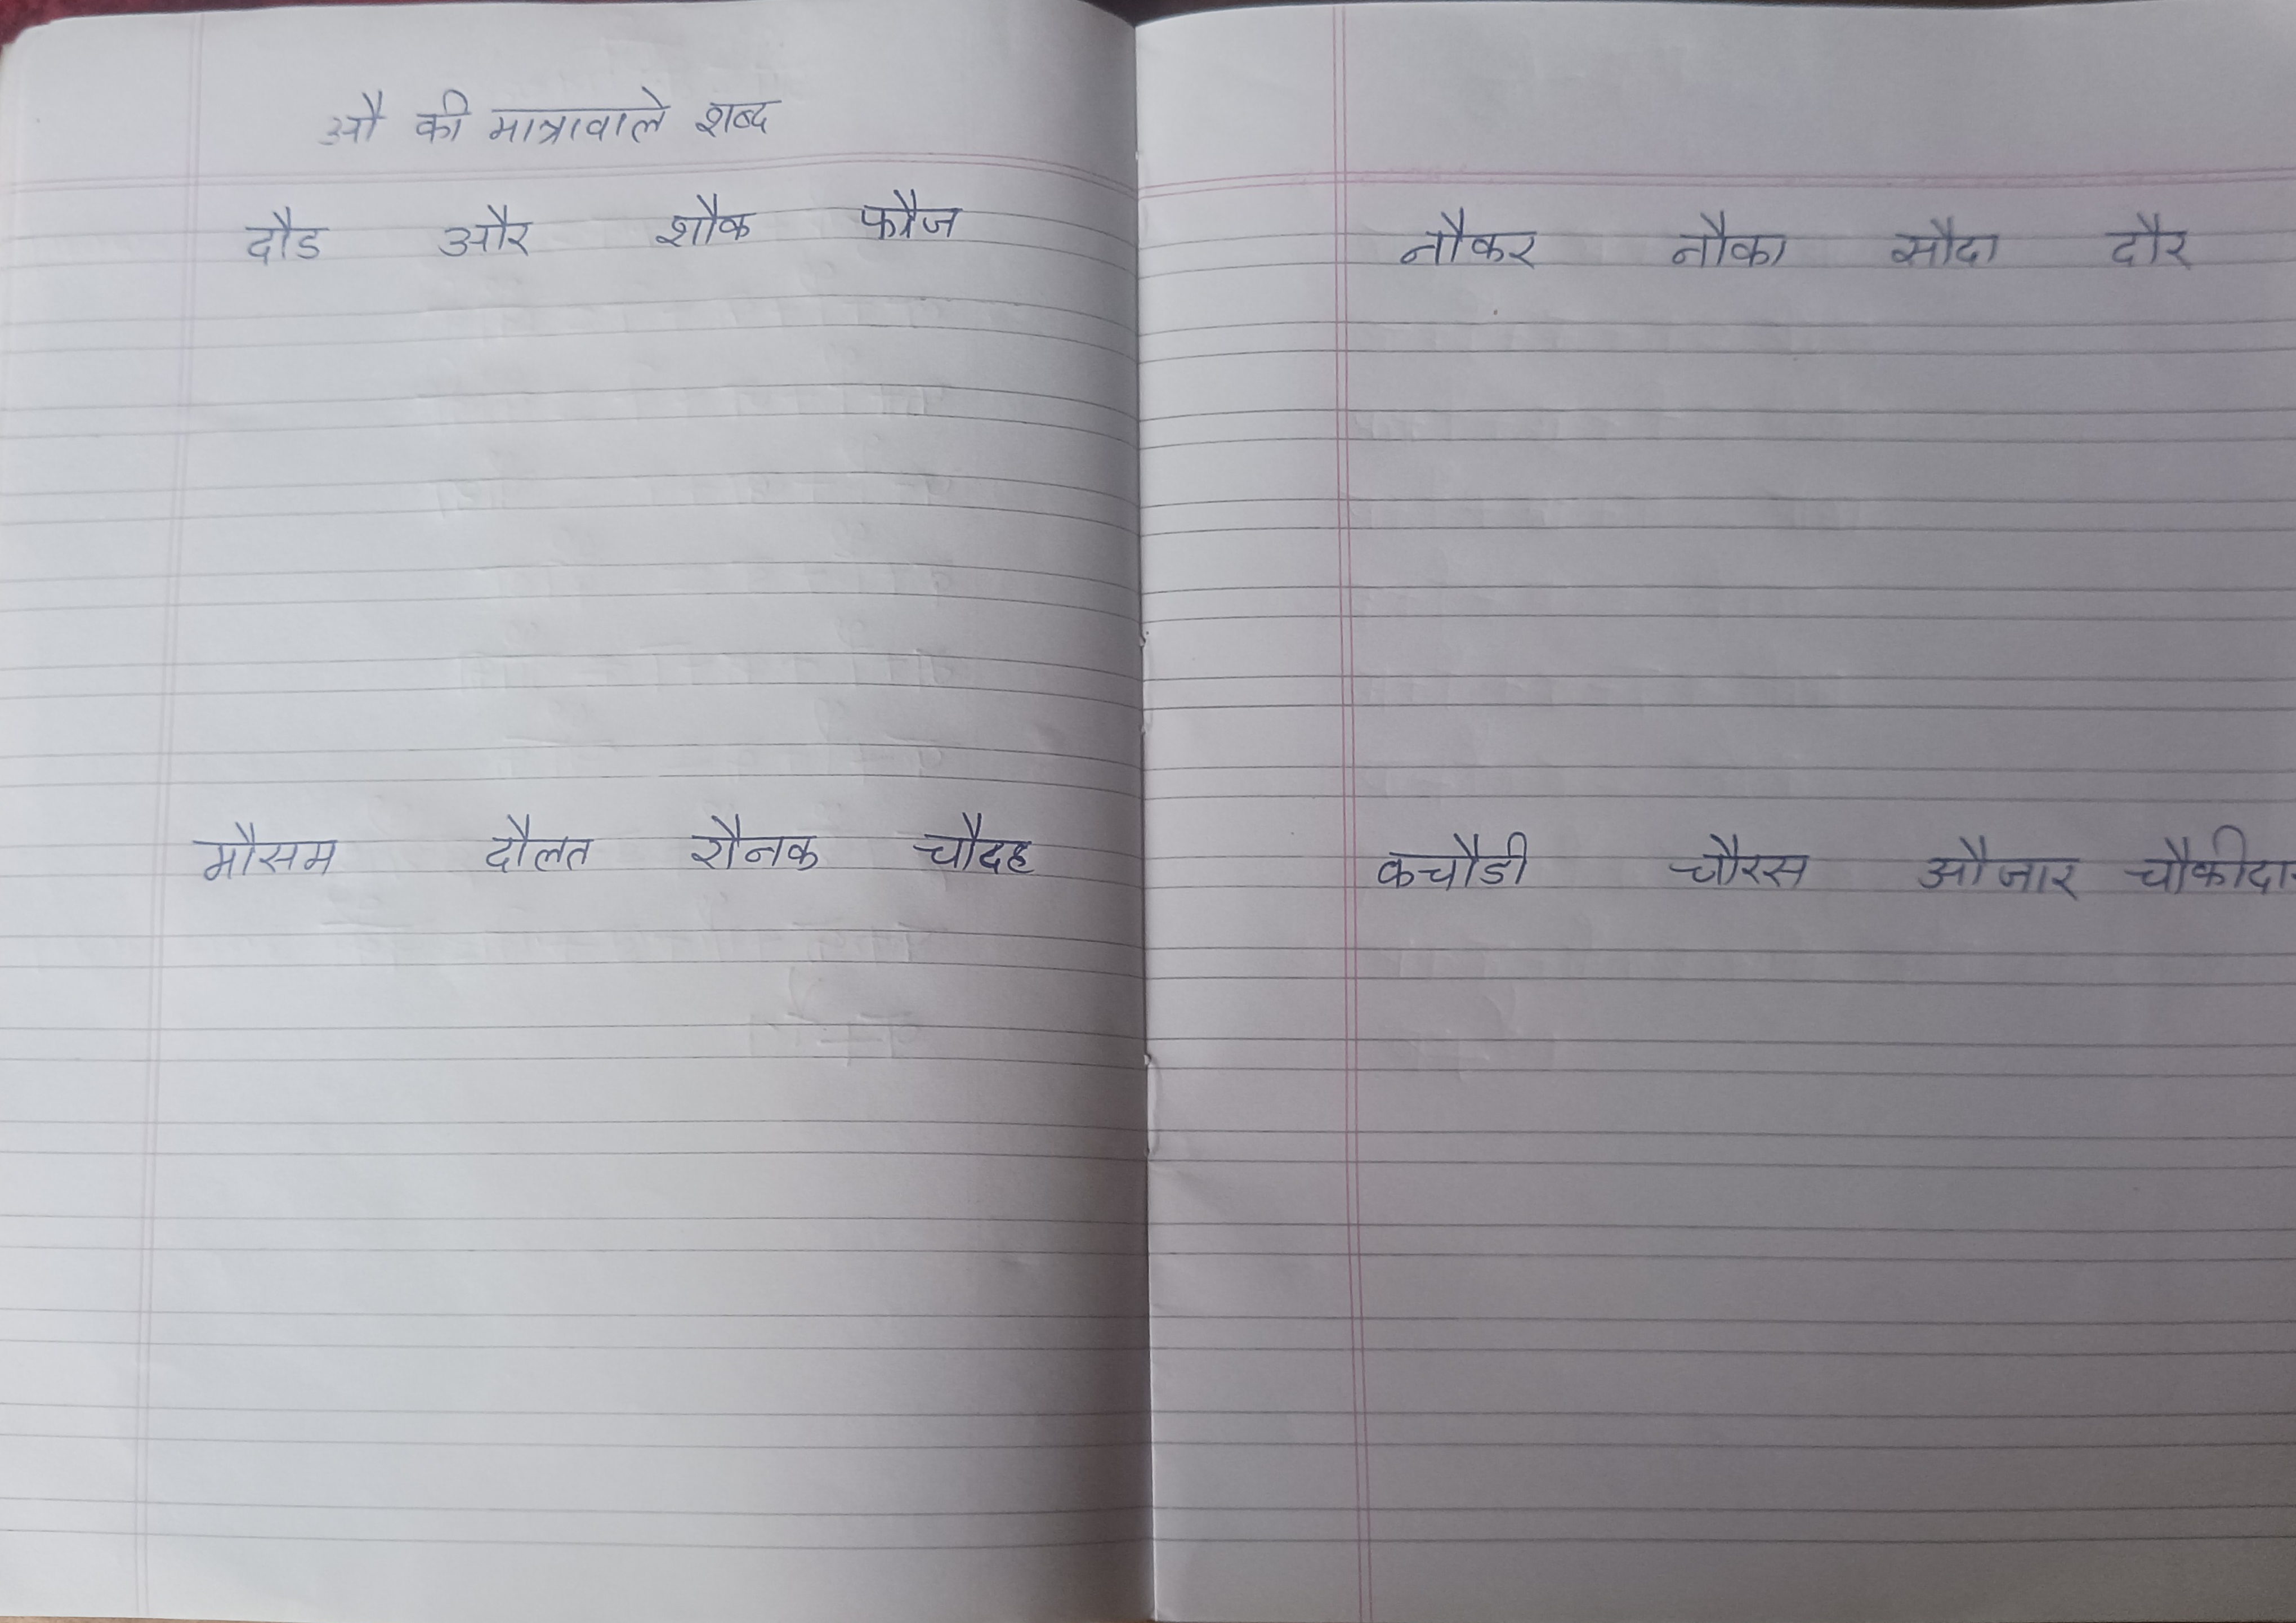 औ की मात्रावाले शब्द
दौड और शौक फौज
मौसम दौलत रौनक चौदह
नौकर नौका सौदा दौर
कचौडी चौरस औजार चौकीदा